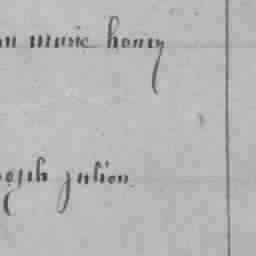 an marie henry
oseph julien